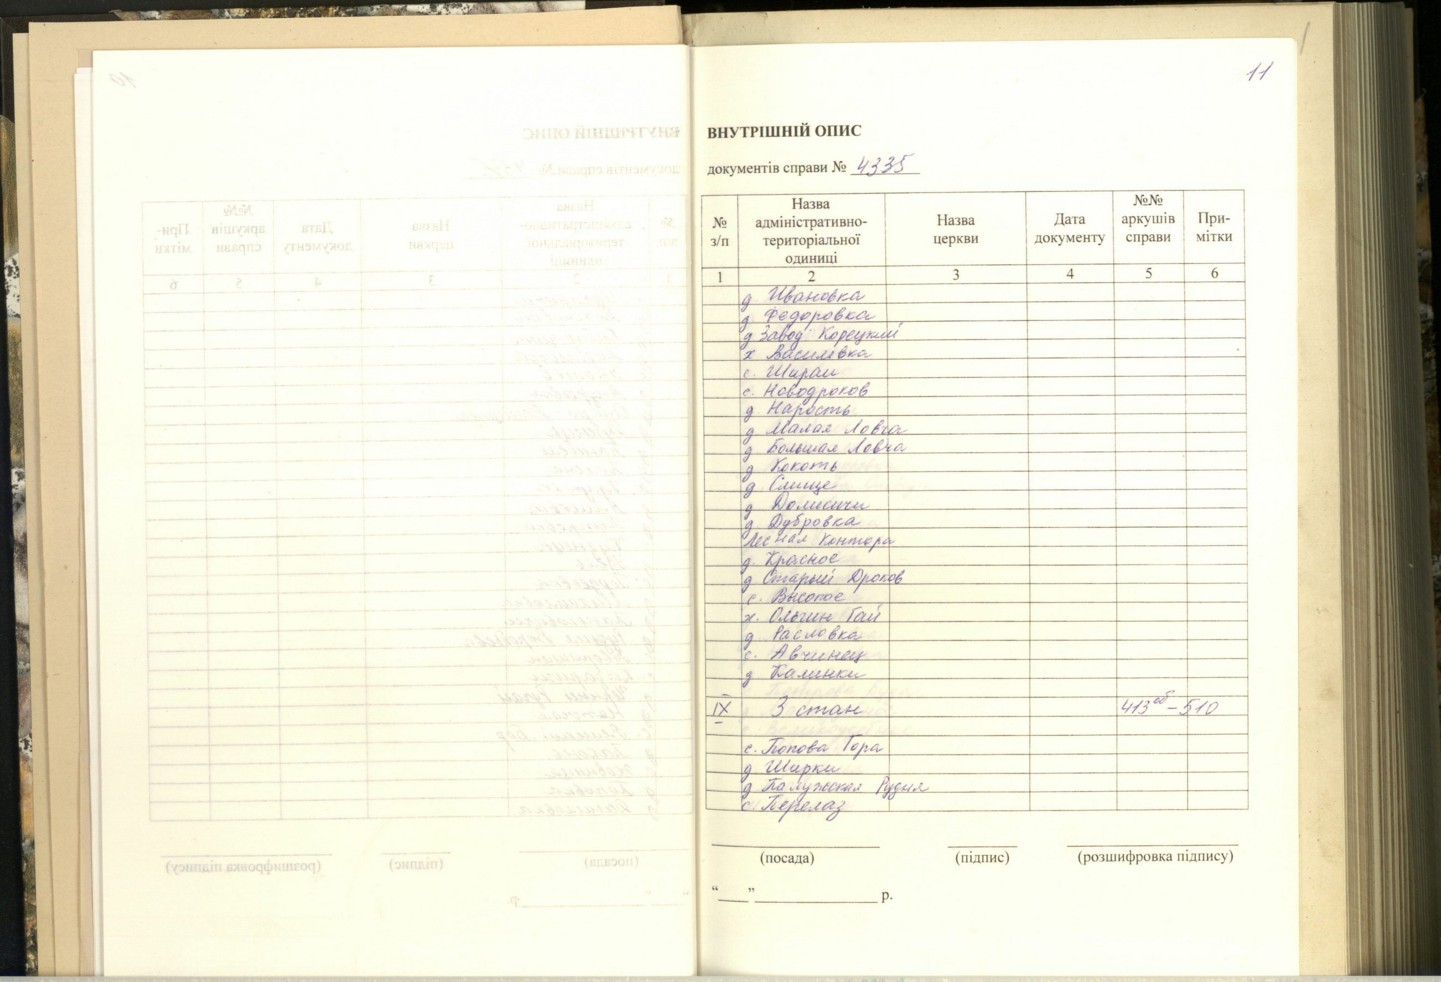 11
ВНУТРІШНІЙ ОПИС
документів справи № 4335
№ з/п
Назва адміністративно-територіальної одиниці
Назва церкви
Дата документу
№№ аркушів справи
При-мітки
1 2 3 4 5 6
д. Ивановка
д. Федоровка
д Завод Корецкий
х Василевка
с. Ширки
с. Новодроков
д. Нарость
д Малая Ловча
д Большая Ловча
д Кокоть
д Смище
д Долисичи
д Дубровка
Лесная Контора
д. Красное
д Старый Дроков
с. Высокое
х. Ольгин Гай
д. Расловка
с. Авчинец
д Калинки
IX 3 стан 413об-510
с. Попова Гора
д Ширки
д Палужская Рудня
с Перелаз
(посада) (підпис) (розшифровка підпису)
“____” ______________ р.